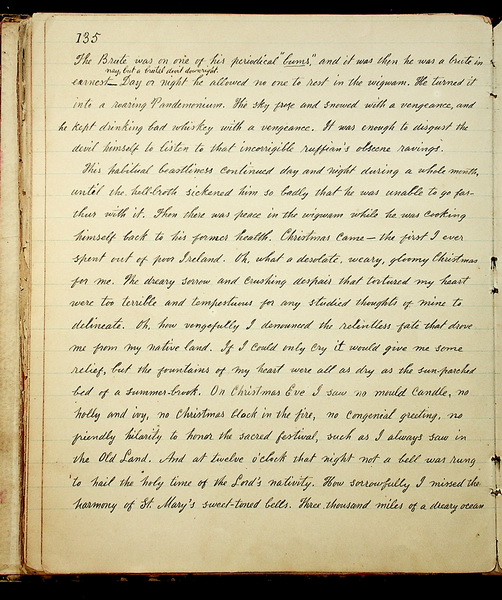 135
The Brute was on one of his periodical "bums", and it was then he was a brute in
nay, but a brutal devil downright.
earnest— Day or night he allowed no one to rest in the wigwam. He turned it
into a roaring Pandemonium. The sky froze and snowed with a vengeance, and
he kept drinking bad whiskey with a vengeance. It was enough to disgust the
devil himself to listen to that incorrigible ruffian's obscene ravings.
This habitual beastliness continued day and night during a whole month,
until the hell-broth sickened him so badly that he was unable to go far-
ther with it. Then there was peace in the wigwam while he was cooking
himself back to his former health. Christmas came — the first I ever
spent out of poor Ireland. Oh, what a desolate, weary, gloomy Christmas
for me. The dreary sorrow and crushing despair that tortured my heart
were too terrible and tempestuous for any studied thoughts of mine to
delineate. Oh, how vengefully I denounced the relentless fate that drove
me from my native land. If I could only cry it would give me some
relief, but the fountains of my heart were all as dry as the sun-parched
bed of a summer-brook. On Christmas Eve I saw no mould candle, no
holly and ivy, no Christmas block in the fire, no congenial greeting, no
friendly hilarity to honor the sacred festival, such as I always saw in
the Old Land. And at twelve o'clock that night not a bell was rung
to hail the "holy time of the Lord's nativity. How sorrowfully I missed the
harmony of St. Mary's sweet-toned bells. Three thousand miles of a dreary ocean